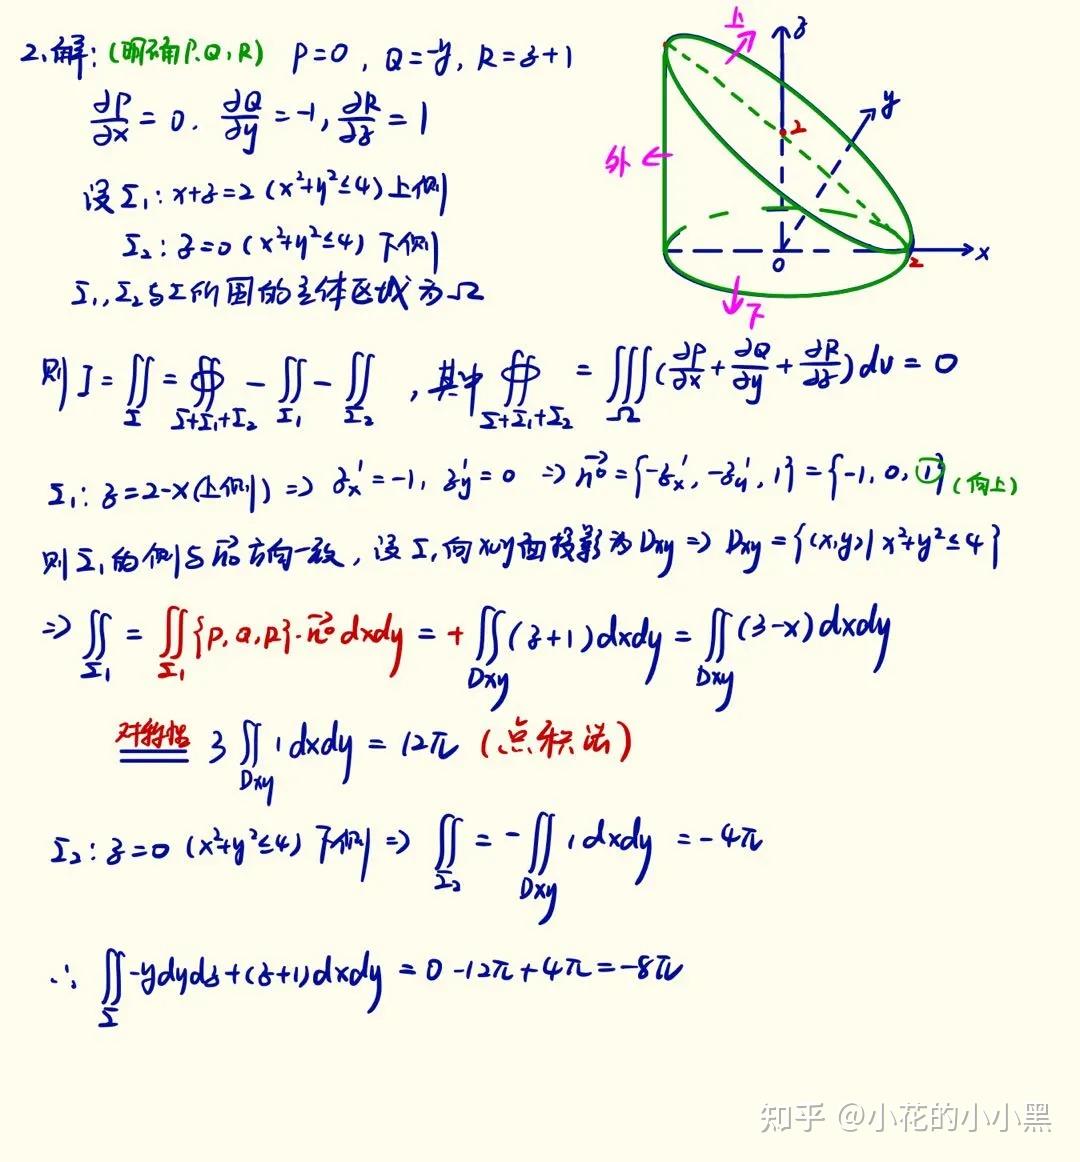 2.解:(明确P.Q,R) P=0, Q=-y, R=z+1
∂P/∂x=0. ∂Q/∂y=-1, ∂R/∂z=1
设Σ₁: x+z=2 (x²+y²≤4)上侧
Σ₂: z=0 (x²+y²≤4) 下侧
Σ₁,Σ₂与Σ所围的立体区域为Ω
上
z
y
2
外
0
2
x
下
则 I=∬_Σ=∯_{Σ+Σ₁+Σ₂}-∬_{Σ₁}-∬_{Σ₂}, 其中∯_{Σ+Σ₁+Σ₂}=∭_Ω(∂P/∂x+∂Q/∂y+∂R/∂z)dv=0
Σ₁: z=2-x(上侧) => z'ₓ=-1, z'_y=0 => n⁰={-z'ₓ, -z'_y, 1}={-1, 0, ①}(向上)
则Σ₁的侧与n⁰方向一致, 设Σ₁向xoy面投影为Dxy => Dxy={(x,y)|x²+y²≤4}
=> ∬_{Σ₁}=∬_{Σ₁}{P,Q,R}·n⁰dxdy=+∬_{Dxy}(z+1)dxdy=∬_{Dxy}(3-x)dxdy
对称性 3∬_{Dxy}1dxdy=12π (点积法)
Σ₂: z=0 (x²+y²≤4) 下侧 => ∬_{Σ₂}=-∬_{Dxy}1dxdy=-4π
∴ ∬_Σ-ydydz+(z+1)dxdy=0-12π+4π=-8π
知乎 @小花的小小黑